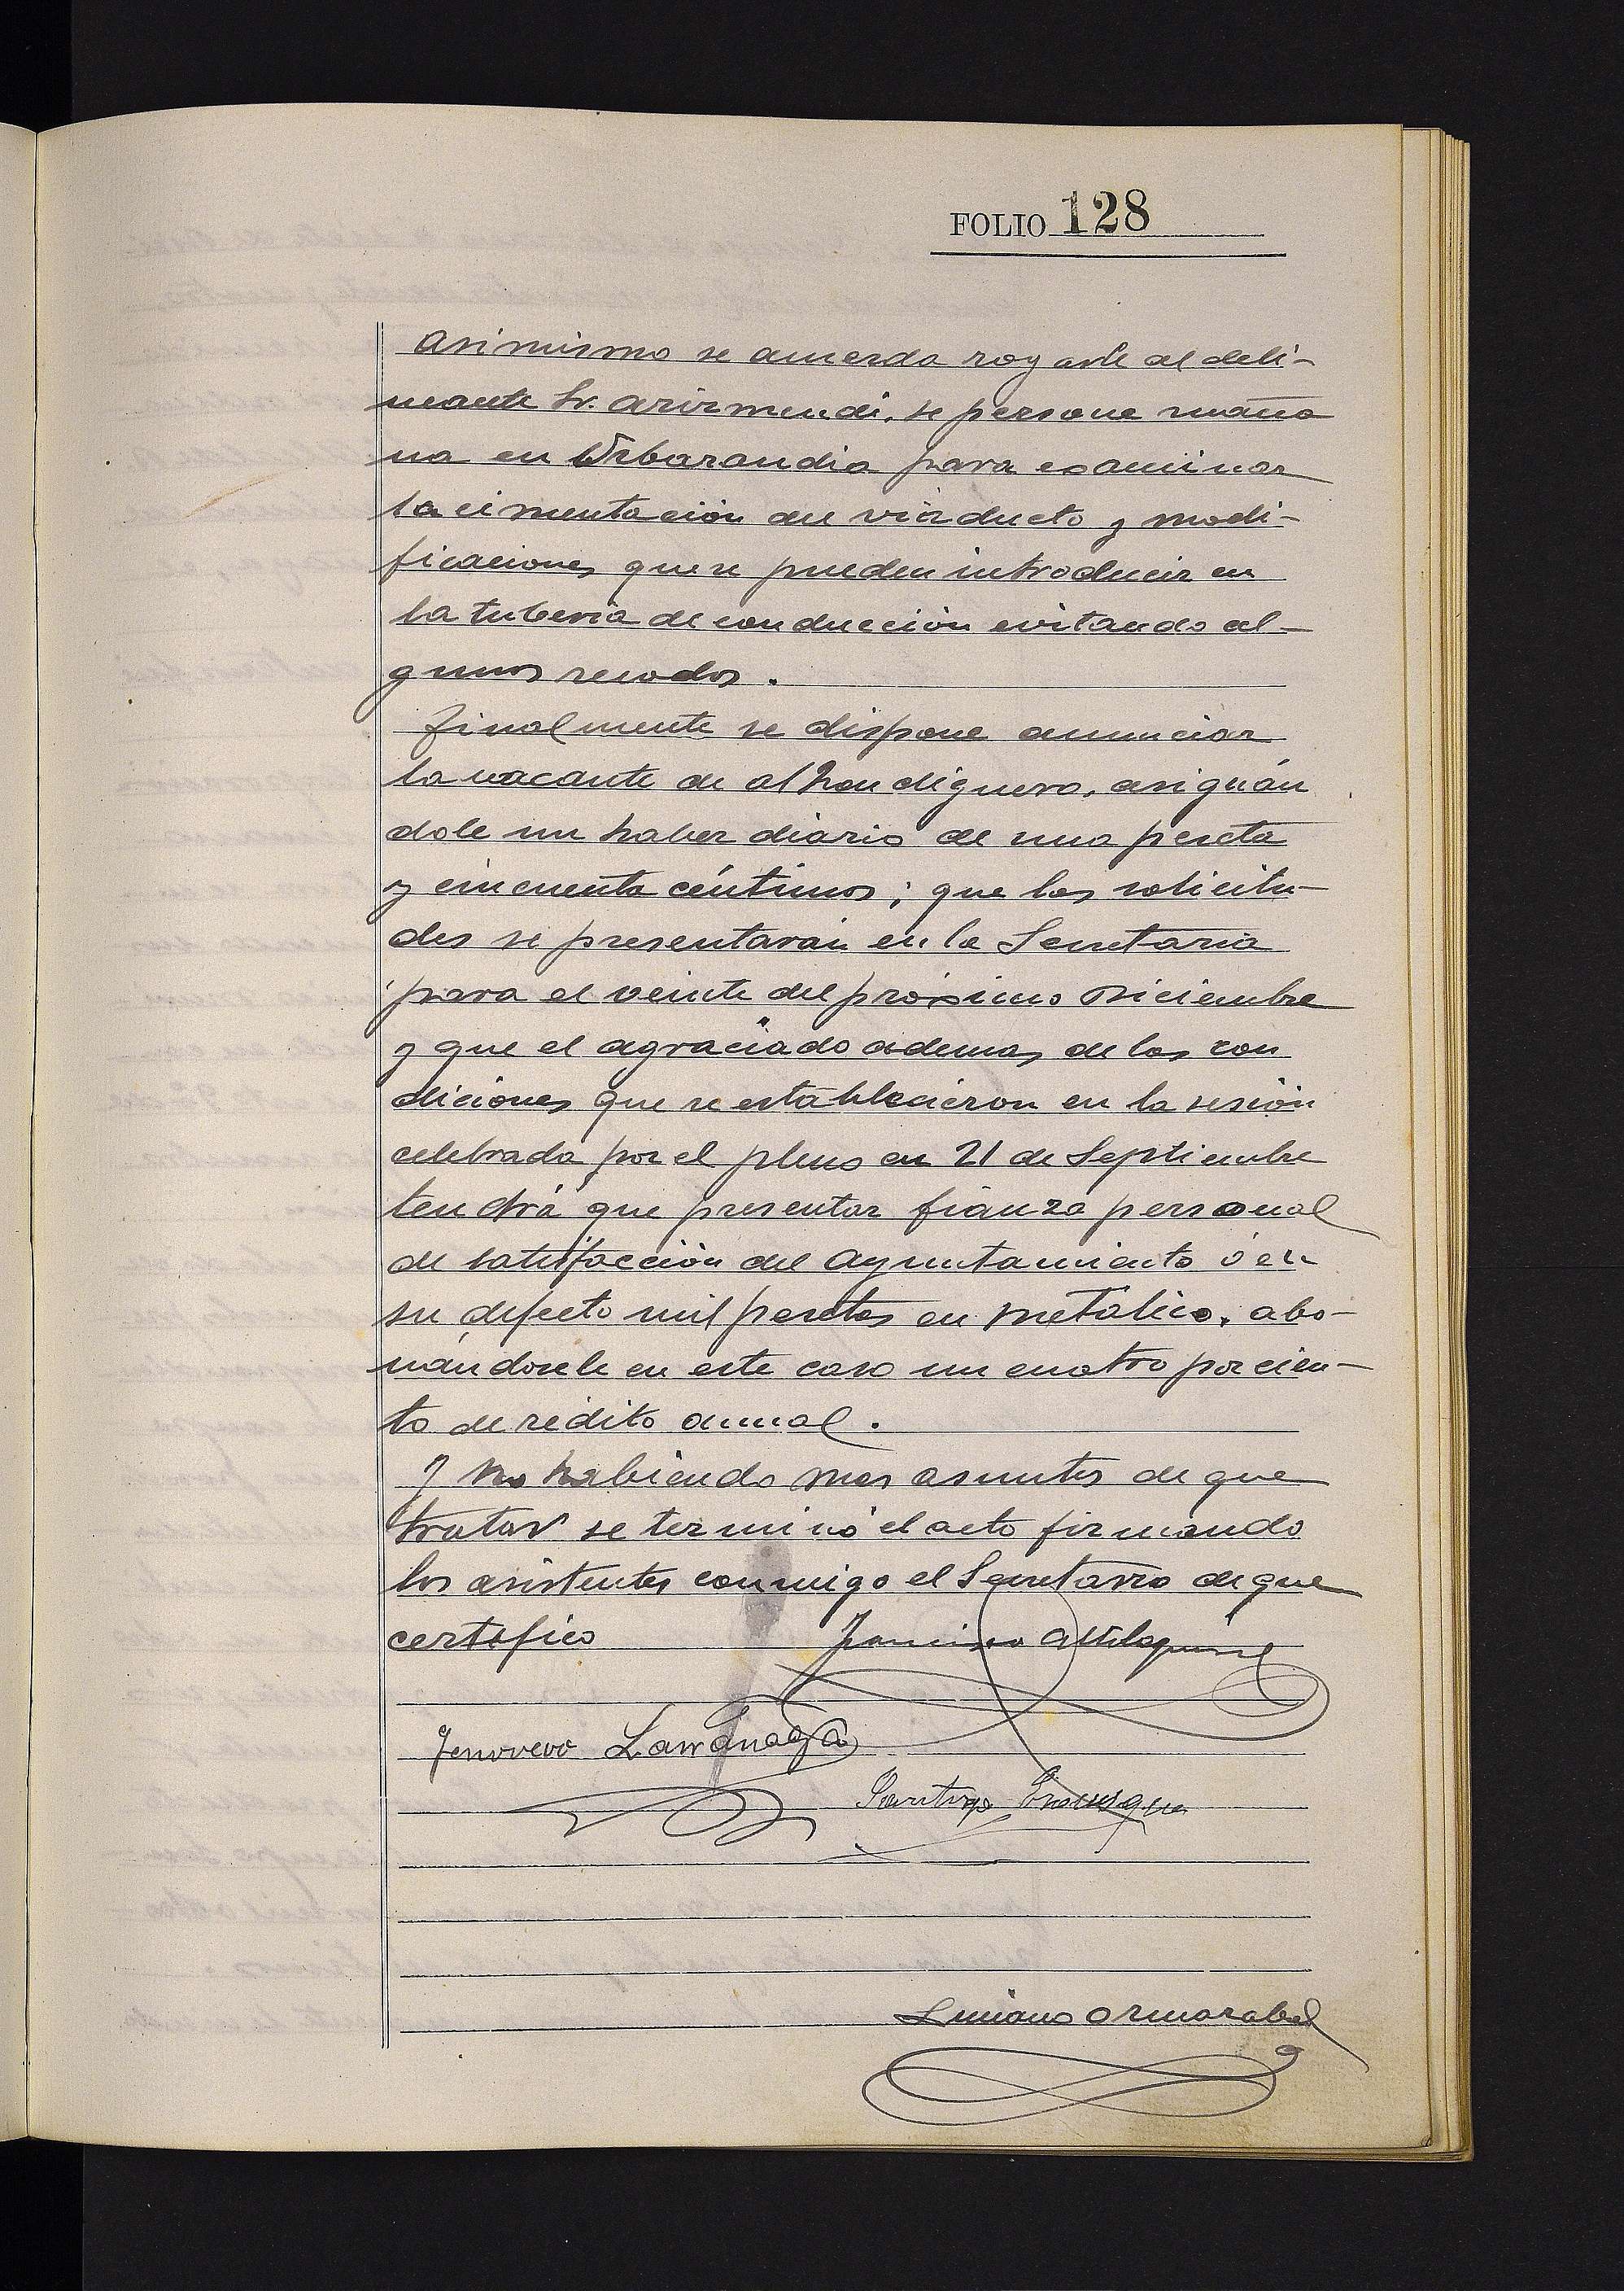 FOLIO 128
Asimismo se acuerda rogarle al deli-
neante Sr. Arizmendi, se persone maña
na en Urbarandia para examinar
la cimentación del viaducto y modi-
ficaciones que se pueden introducir en
la tuberia de conducción evitando al-
gunos recodos.
Finalmente se dispone anunciar
la vacante de alhondiguero, asignán
dole un haber diario de una peseta
y cincuenta céntimos; que las solicitu-
des se presentarán en la Secretaria
para el veinte del próximo Diciembre
y que el agraciado ademas de las con
diciones que se establecieron en la sesión
celebrada por el pleno en 21 de Septiembre
tendrá que presentar fianza personal
de satisfacción del Ayuntamiento ó en
su defecto mil pesetas en metálico, abo-
nándosele en este caso un cuatro por cien-
to de rédito anual.
Y no habiendo mas asuntos de que
tratar se terminó el acto firmando
los asistentes conmigo el Secretario de que
certifico
Francisco
Jenovevo Larrañaga
Santiago
Luciano Ormazabal